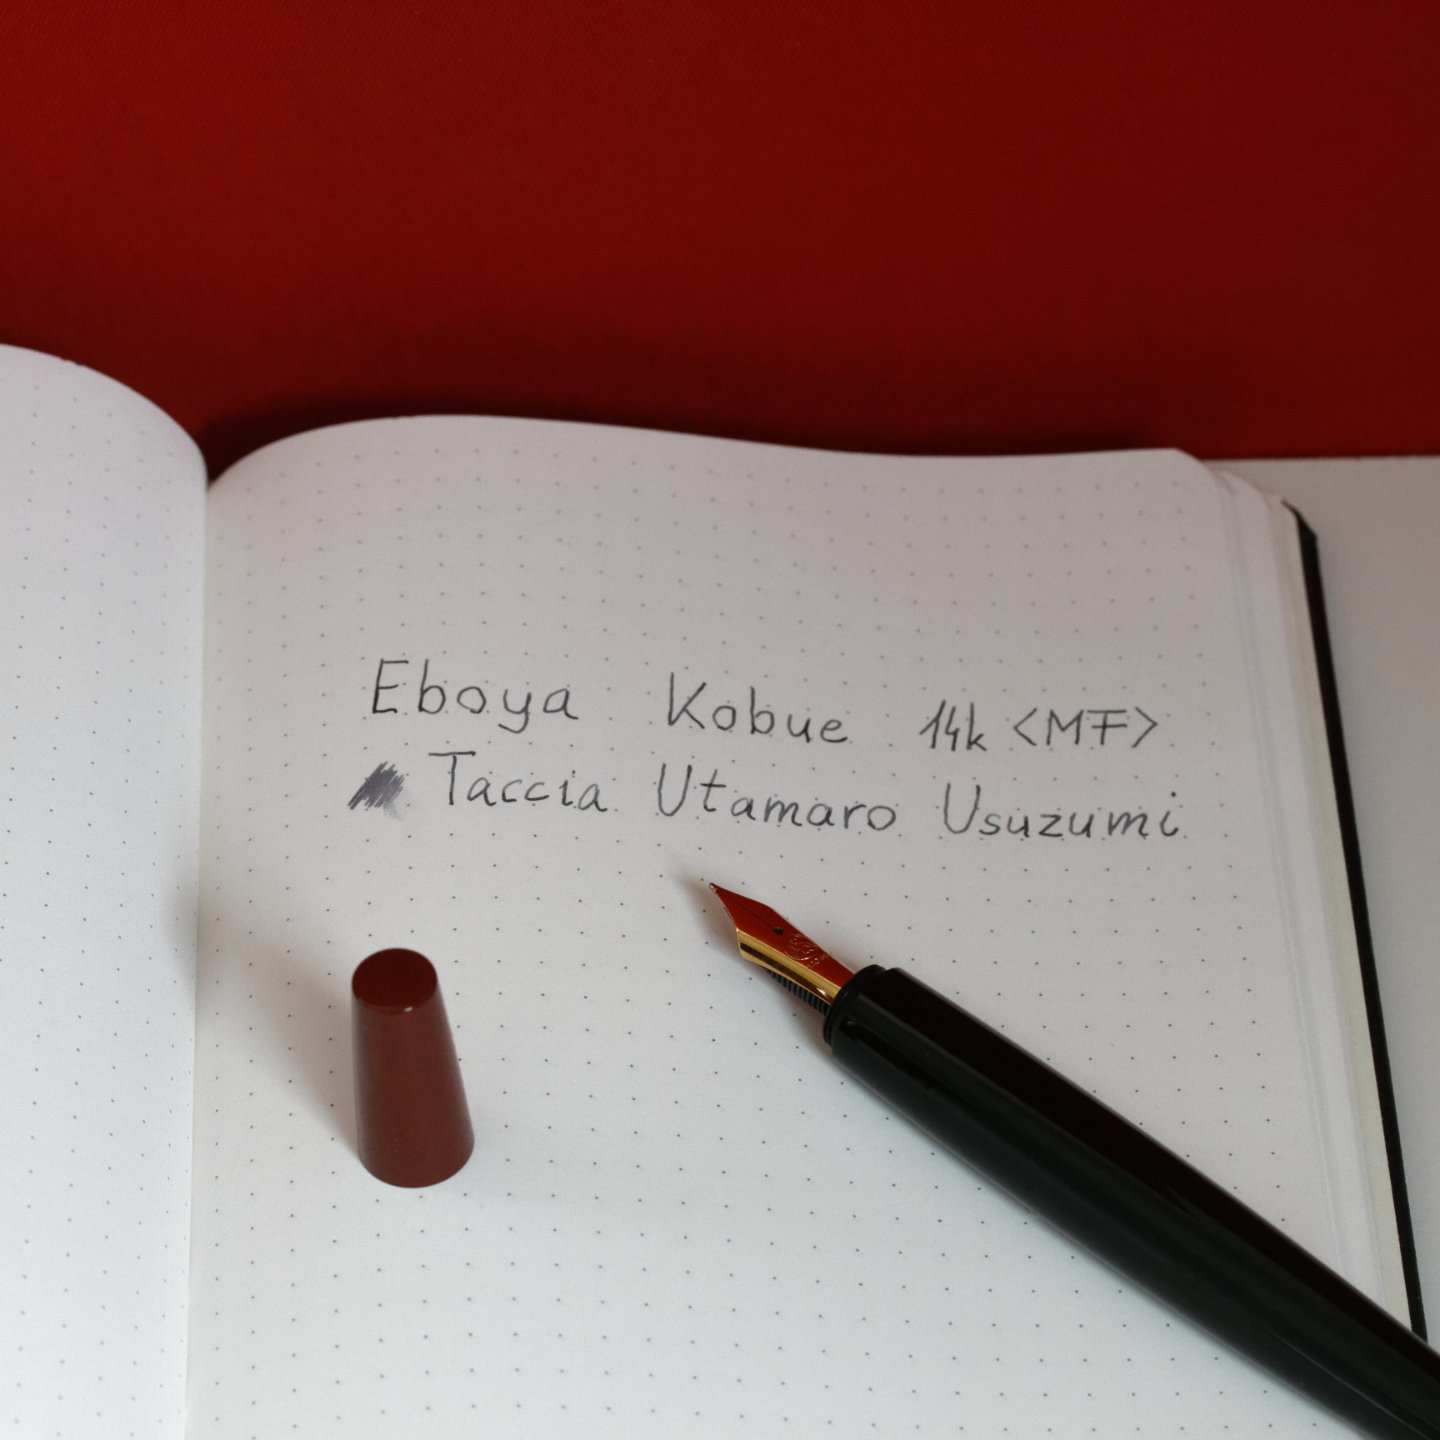 Eboya Kobue 14k <MF>
Taccia Utamaro Usuzumi